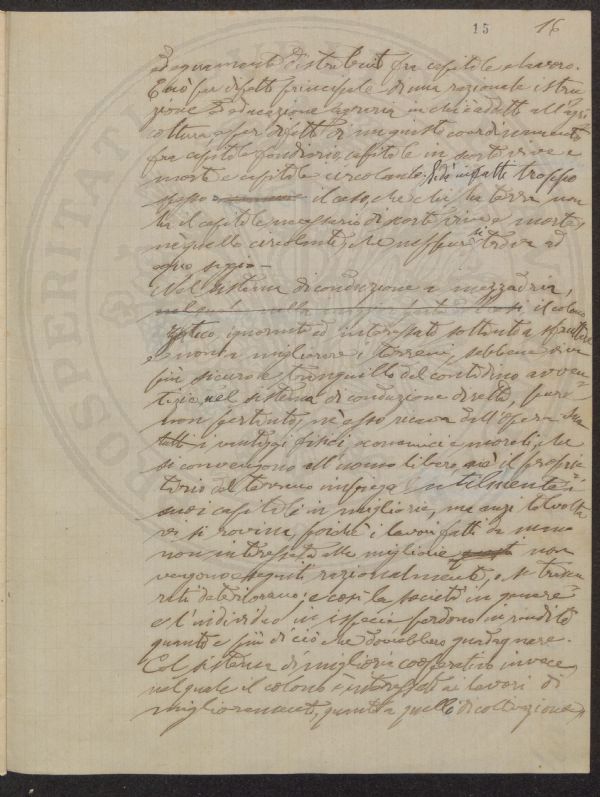 15 16
adeguamente distribuito fra capitale e lavoro.
E ciò per difetto principale di una razionale istru-
zione ed educazione agraria in chi è addetto all'agri-
coltura e per difetto di un giusto coordinamento
fra capitale fondiario, capitale in scorte vive e
morte e capitale circolante. Si dà infatti troppo
spesso il caso, che chi ha terra non
ha il capitale necessario di scorte vive e morte,
nè quello circolante, che neppur si trova ad
equo
Nel sistema di conduzione a mezzadria,
il colono
ignorante ed interessato soltanto a sfruttare
e non a migliorare i terreni, sebbene viva
più sicuro e tranquillo del contadino avven-
tizio nel sistema di conduzione diretta, pure
non pertanto, nè esso ricava dall'opera sua
tutti i vantaggi fisici economici e morali, che
si convengono all'uomo libero, nè il proprie-
tario del terreno impiega utilmente i
suoi capitali in migliorie, ma anzi talvolta
vi si rovina, perchè i lavori fatti da mano
non interessata alle migliorie non
vengono eseguiti razionalmente, o
deteriorano; e così la società in genere
e l'individuo in ispecie perdono in realtà
quanto e più di ciò che dovrebbero guadagnare.
Col sistema di migliorie cooperativo invece,
nel quale il colono è interessato ai lavori di
miglioramento, quanto a quello di coltivazione,
PROSPERITATI